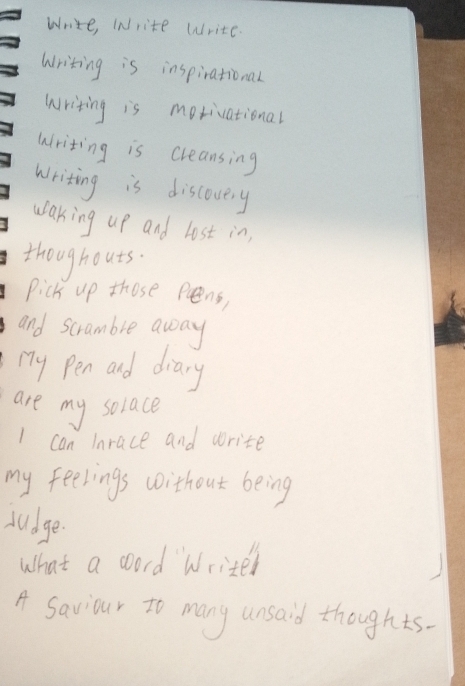 Write, Write Write.
Writing is inspirational
Writing is motivational
Writing is cleansing
Writing is discovery
waking up and lost in,
thoughouts.
Pick up those Pens,
and scramble away
My Pen and diary
are my solace
I can Inrace and write
my feelings without being
judge.
What a word "Write"
A Saviour to many unsaid thoughts-